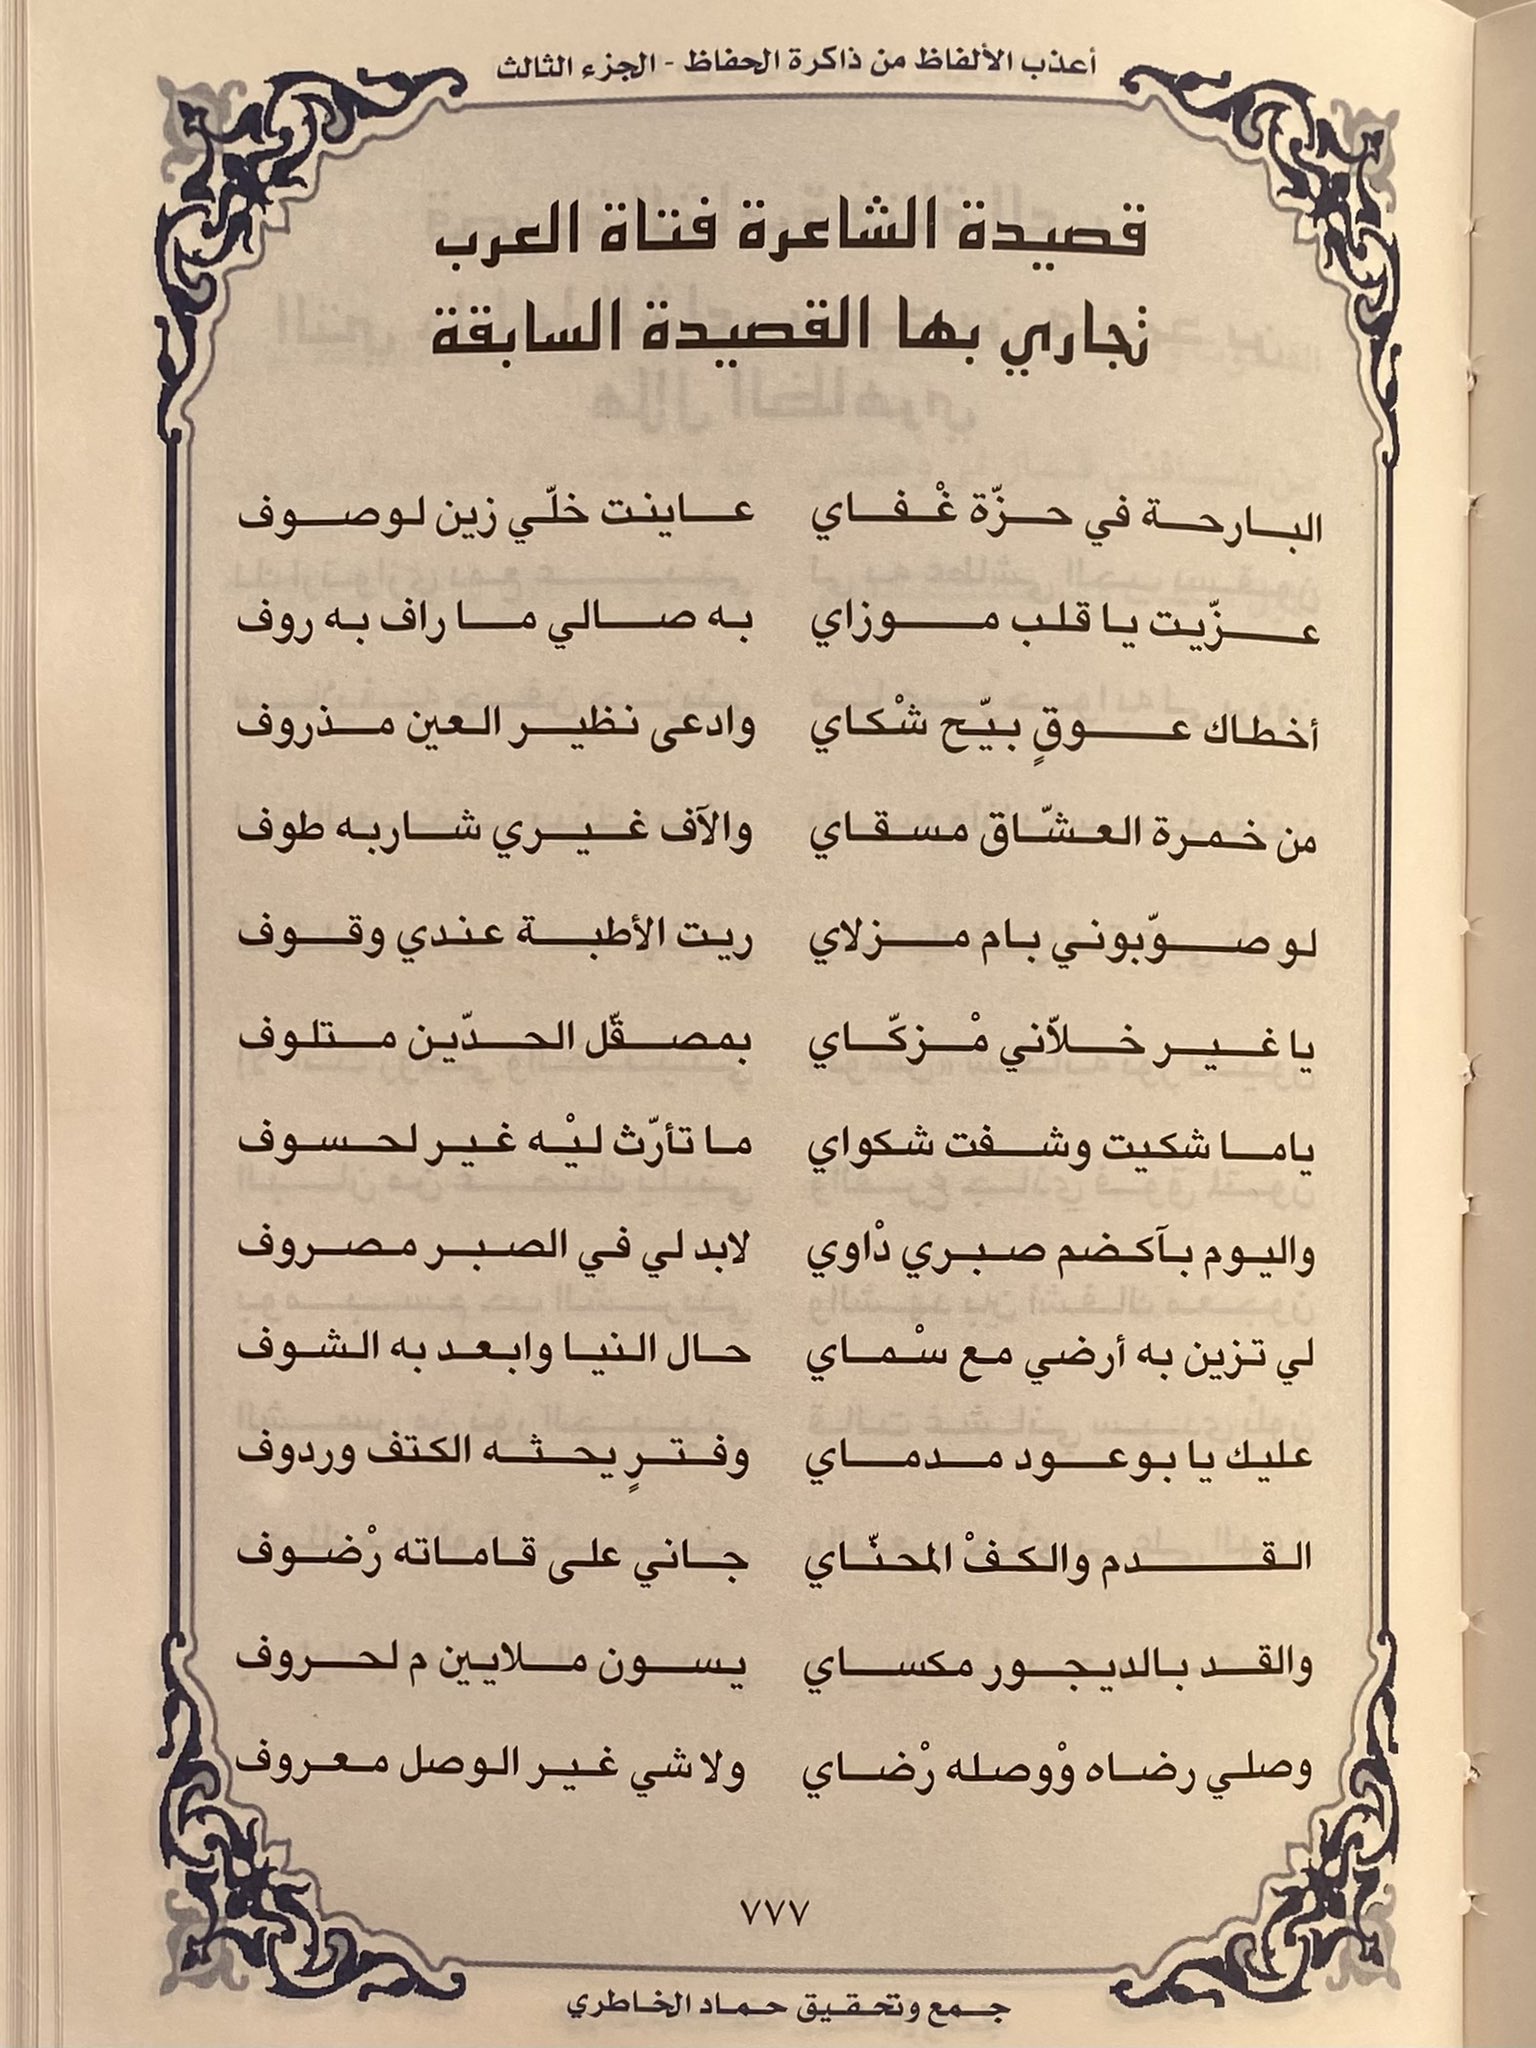 أعذب الألفاظ من ذاكرة الحفاظ - الجزء الثالث
قصيدة الشاعرة فتاة العرب
تجاري بها القصيدة السابقة
البارحة في حزّة غْفاي عاينت خلّي زين لوصوف
عزّيت يا قلب موزاي به صالي ما راف به روف
أخطاك عوقٍ بيّح شْكاي وادعى نظير العين مذروف
من خمرة العشّاق مسقاي والآف غيري شاربه طوف
لو صوّبوني بام مزلاي ريت الأطبة عندي وقوف
يا غير خلاّني مْزكّاي بمصقّل الحدّين متلوف
ياما شكيت وشفت شكواي ما تأرّث ليْه غير لحسوف
واليوم بآكضم صبري دْاوي لابد لي في الصبر مصروف
لي تزين به أرضي مع سْماي حال النيا وابعد به الشوف
عليك يا بوعود مدماي وفترٍ يحثه الكتف وردوف
القدم والكفْ المحنّاي جاني على قاماته رْضوف
والقد بالديجور مكساي يسون ملايين م لحروف
وصلي رضاه وْوصله رْضاي ولا شي غير الوصل معروف
٧٧٧
جمع وتحقيق حماد الخاطري